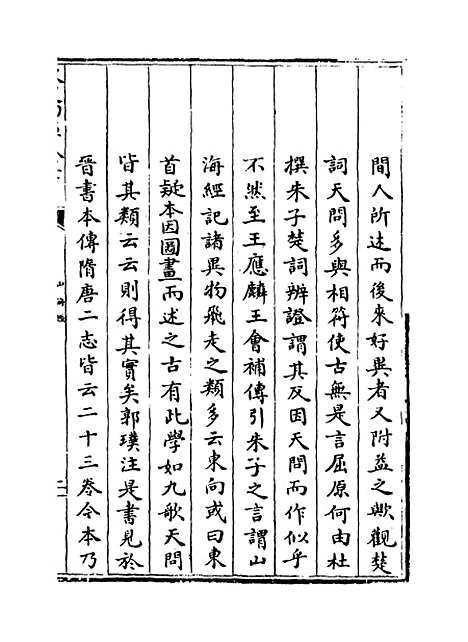 間人所述而後來好異者又附益之歟觀楚
詞天問多與相符使古無是言屈原何由杜
撰朱子楚詞辨證謂其反因天問而作似乎
不然至王應麟王會補傳引朱子之言謂山
海經記諸異物飛走之類多云東向或曰東
首疑本因圖畫而述之古有此學如九歌天問
皆其類云云則得其實矣郭璞注是書見於
晉書本傳隋唐二志皆云二十三卷今本乃
山海經